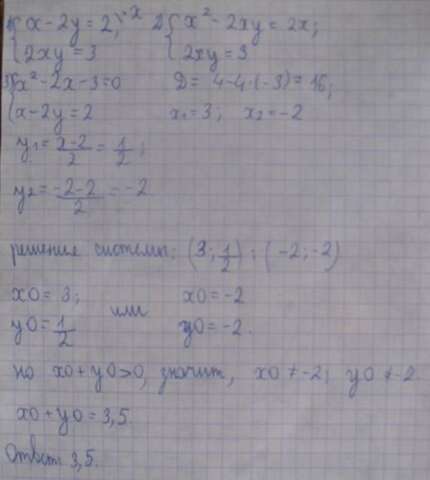 1) { x-2y=2, | ·x 2) { x²-2xy=2x;
2xy=3 2xy=3
3) { x²-2x-3=0 D= 4-4·(-3)=16;
x-2y=2 x₁=3; x₂=-2
y₁= x-2/2 = 1/2;
y₂= -2-2/2 = -2
решение системы: (3; 1/2); (-2;-2)
x0=3; или x0=-2
y0=1/2 y0=-2.
но x0+y0>0, значит, x0≠-2; y0≠-2
x0+y0=3,5.
Ответ 3,5.